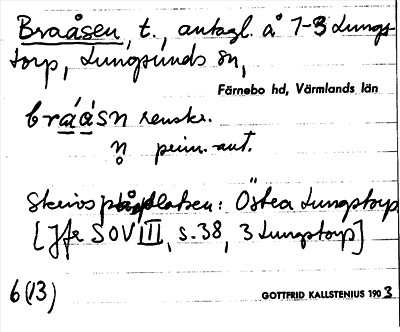 Braåsen, t., antagl. å 1-3 Lungs-
torp, Lungsunds sn,
Färnebo hd, Värmlands län
bráásn renskr.
n̥ prim.-ant.
Skrivs på platsen: Östra Lungstorp
[Jfr SOV III, s.38, 3 Lungstorp]
6(13)
GOTTFRID KALLSTENIUS 1903